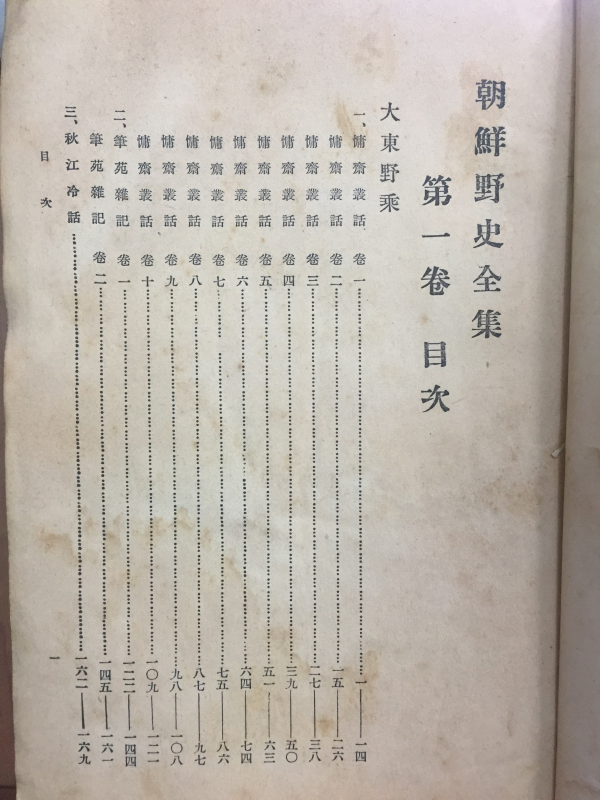 朝鮮野史全集
第一卷 目次
大東野乘
一、慵齋叢話 卷一……一——一四
慵齋叢話 卷二……一五——二六
慵齋叢話 卷三……二七——三八
慵齋叢話 卷四……三九——五〇
慵齋叢話 卷五……五一——六三
慵齋叢話 卷六……六四——七四
慵齋叢話 卷七……七五——八六
慵齋叢話 卷八……八七——九七
慵齋叢話 卷九……九八——一〇八
慵齋叢話 卷十……一〇九——一二一
二、筆苑雜記 卷一……一二二——一四四
筆苑雜記 卷二……一四五——一六一
三、秋江冷話……一六二——一六九
目次
一